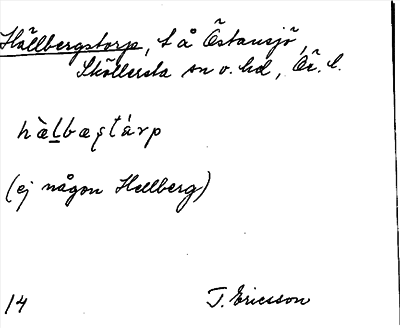 Hällbergstorp, t å Östansjö,
Sköllersta sn o. hd, Ör. l.
hàlbæʂtárp
(ej någon Hellberg)
14 T. Ericsson